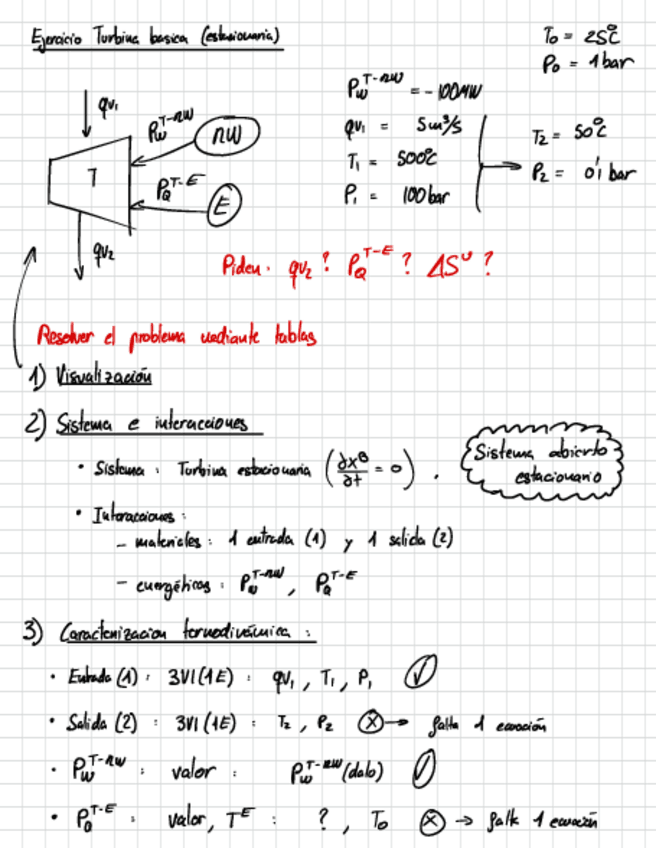 Ejercicio Turbina basica (estacionaria)
T₀ = 25ºC
P₀ = 1 bar
P_W^{T-nW} = -100MW
qv₁ = 5m³/s
T₁ = 500ºC
P₁ = 100 bar
T₂ = 50ºC
P₂ = 0'1 bar
qv₁
P_W^{T-nW}
nW
T
P_Q^{T-E}
E
qv₂
Piden: qv₂? P_Q^{T-E}? ΔSᵁ?
Resolver el problema mediante tablas
1) Visualización
2) Sistema e interacciones
Sistema abierto
estacionario
• Sistema: Turbina estacionaria (∂x^B/∂t = 0).
• Interacciones:
– materiales: 1 entrada (1) y 1 salida (2)
– energéticas: P_W^{T-nW}, P_Q^{T-E}
3) Caracterizacion termodinámica:
• Entrada (1): 3VI (1E): qv₁, T₁, P₁ ✓
• Salida (2): 3VI (1E): T₂, P₂ ⓧ→ falta 1 ecuación
• P_W^{T-nW}: valor: P_W^{T-nW} (dato) ✓
• P_Q^{T-E}: valor, T^E: ?, T₀ ⓧ → falta 1 ecuación